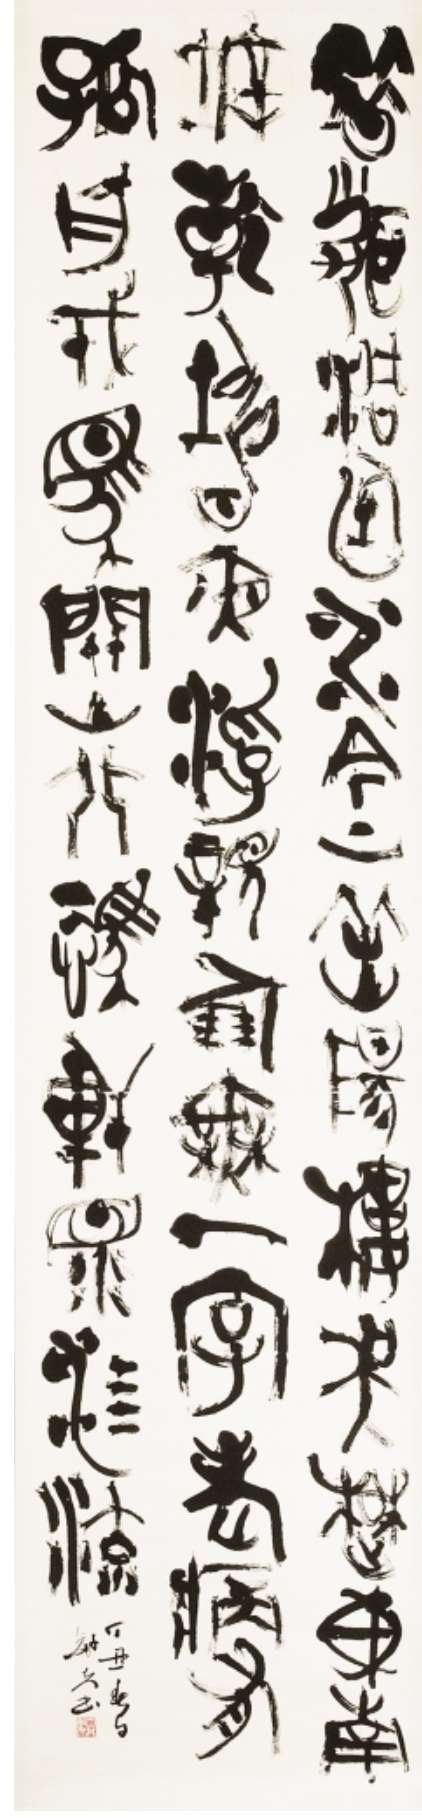 昔聞洞庭水今上岳陽樓吳楚東南
坼乾坤日夜浮親朋無一字老病有
孤舟戎馬關山北憑軒涕泗流
丁丑春日